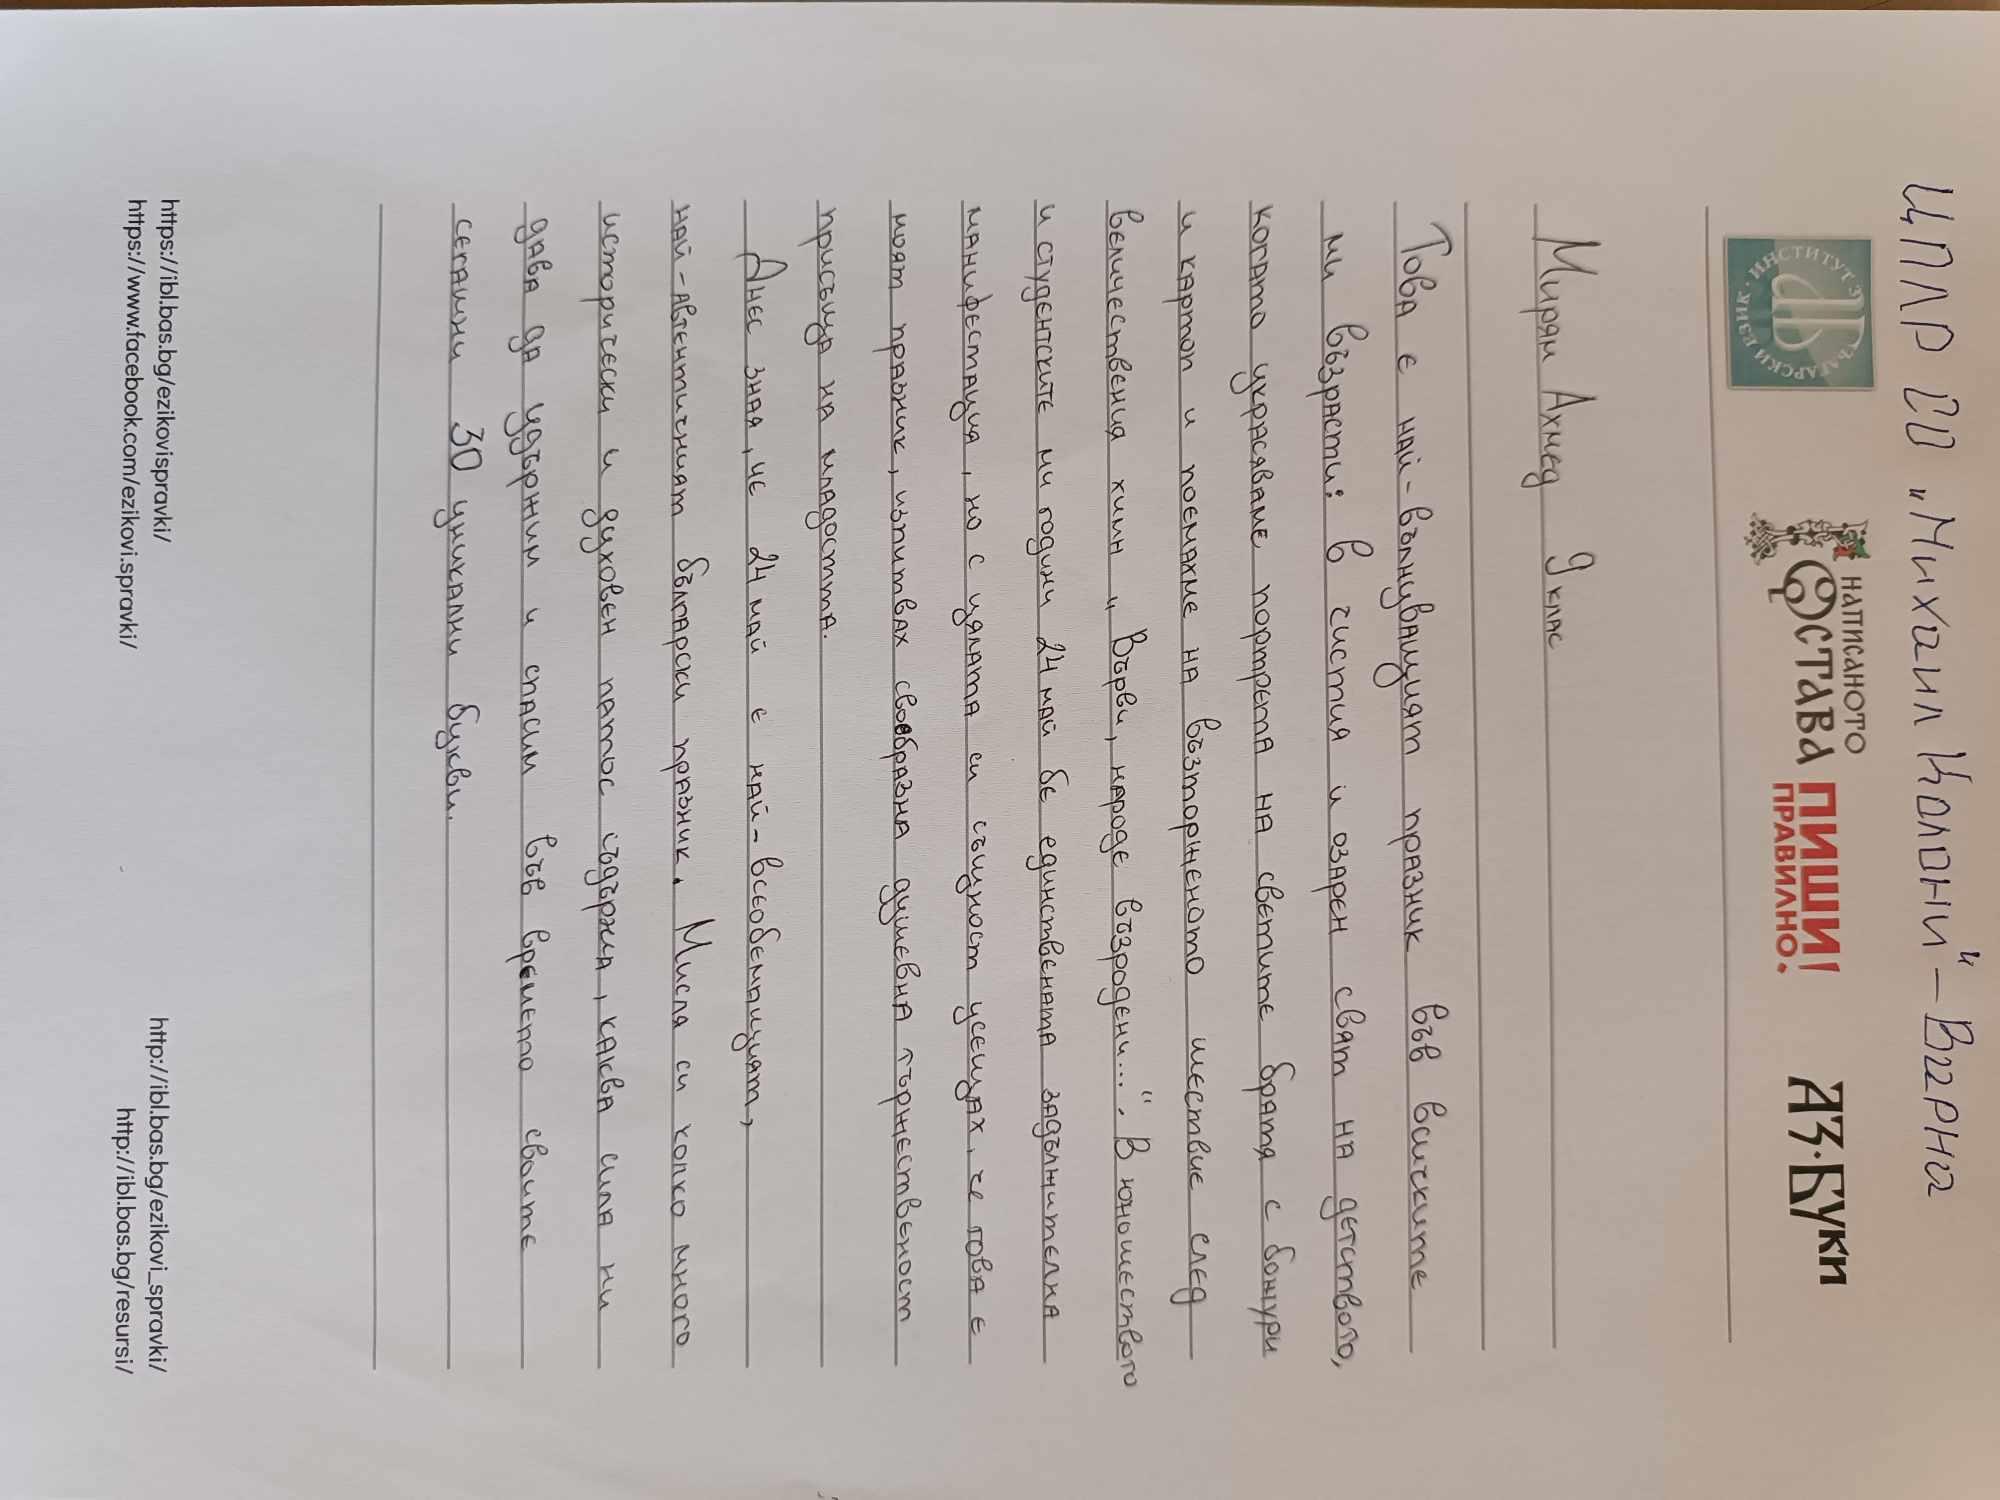 ЦПЛР СО "Михаил Колони" – Варна
ИНСТИТУТ ЗА БЪЛГАРСКИ ЕЗИК
НАПИСАНОТО
ОСТАВА
ПИШИ
ПРАВИЛНО!
АЗ·БУКИ
Мирям Ахмед 9 клас
Това е най-вълнуващият празник във всичките
ми възрасти: в чистия и озарен свят на детството,
когато украсяваме портрета на светите братя с божури
и картон и поемахме на възторженото шествие след
величествения химн „Върви, народе възродени...". В юношеството
и студентските ми години 24 май бе единствената задължителна
манифестация, но с цялата си същност усещах, че това е
моят празник, изпитвах своеобразна душевна тържественост
присъща на младостта.
Днес зная, че 24 май е най-всеобемащият,
най-автентичният български празник. Мисля си колко много
исторически и духовен патос съдържа, каква сила ни
дава да удържим и спасим във времето своите
сегашни 30 уникални букви.
https://ibl.bas.bg/ezikovispravki/
https://www.facebook.com/ezikovi.spravki/
http://ibl.bas.bg/ezikovi_spravki/
http://ibl.bas.bg/resursi/